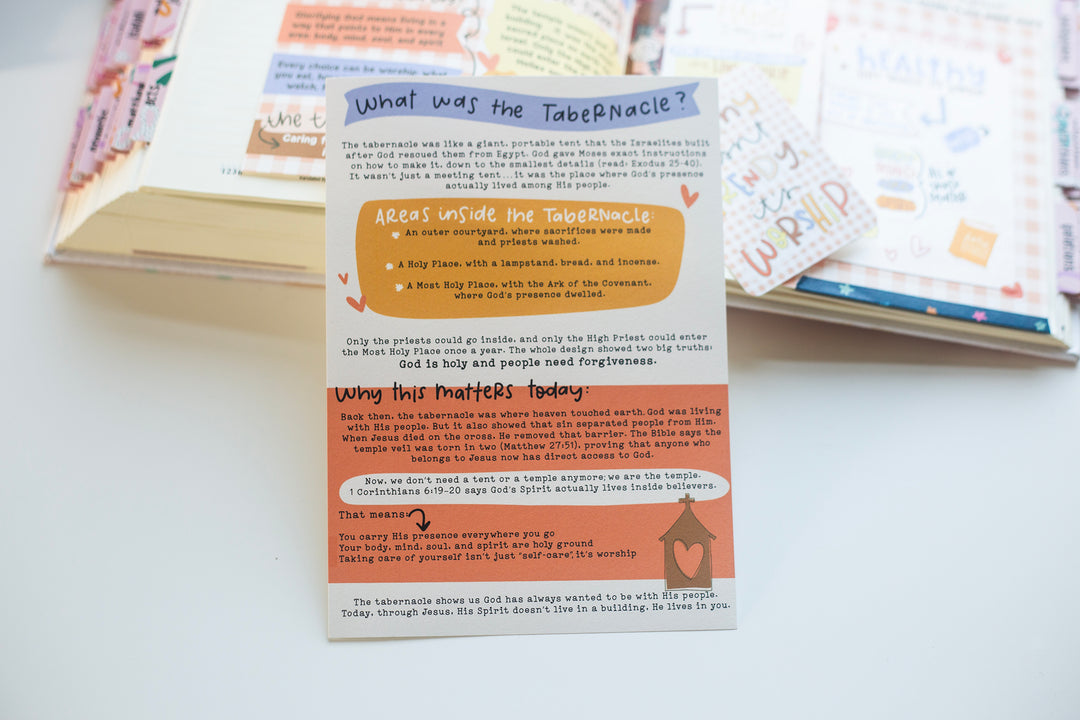 What was the Tabernacle?
The tabernacle was like a giant, portable tent that the Israelites built
after God rescued them from Egypt. God gave Moses exact instructions
on how to make it, down to the smallest details (read: Exodus 25-40).
It wasn't just a meeting tent...it was the place where God's presence
actually lived among His people.
Areas inside the Tabernacle:
An outer courtyard, where sacrifices were made
and priests washed.
A Holy Place, with a lampstand, bread, and incense.
A Most Holy Place, with the Ark of the Covenant,
where God's presence dwelled.
Only the priests could go inside, and only the High Priest could enter
the Most Holy Place once a year. The whole design showed two big truths:
God is holy and people need forgiveness.
Why this matters today:
Back then, the tabernacle was where heaven touched earth.God was living
with His people. But it also showed that sin separated people from Him.
When Jesus died on the cross, He removed that barrier. The Bible says the
temple veil was torn in two (Matthew 27:51), proving that anyone who
belongs to Jesus now has direct access to God.
Now, we don't need a tent or a temple anymore; we are the temple.
1 Corinthians 6:19-20 says God's Spirit actually lives inside believers.
That means:
You carry His presence everywhere you go
Your body, mind, soul, and spirit are holy ground
Taking care of yourself isn't just "self-care", it's worship
The tabernacle shows us God has always wanted to be with His people.
Today, through Jesus, His Spirit doesn't live in a building, He lives in you.
Glorifying God means living in a
way that points to Him in every
area: body, mind, soul, and spirit
Every choice can be worship: what
the t
Caring f
1236
it's
WORSHIP
healthy
MIND
matthew
ACTS